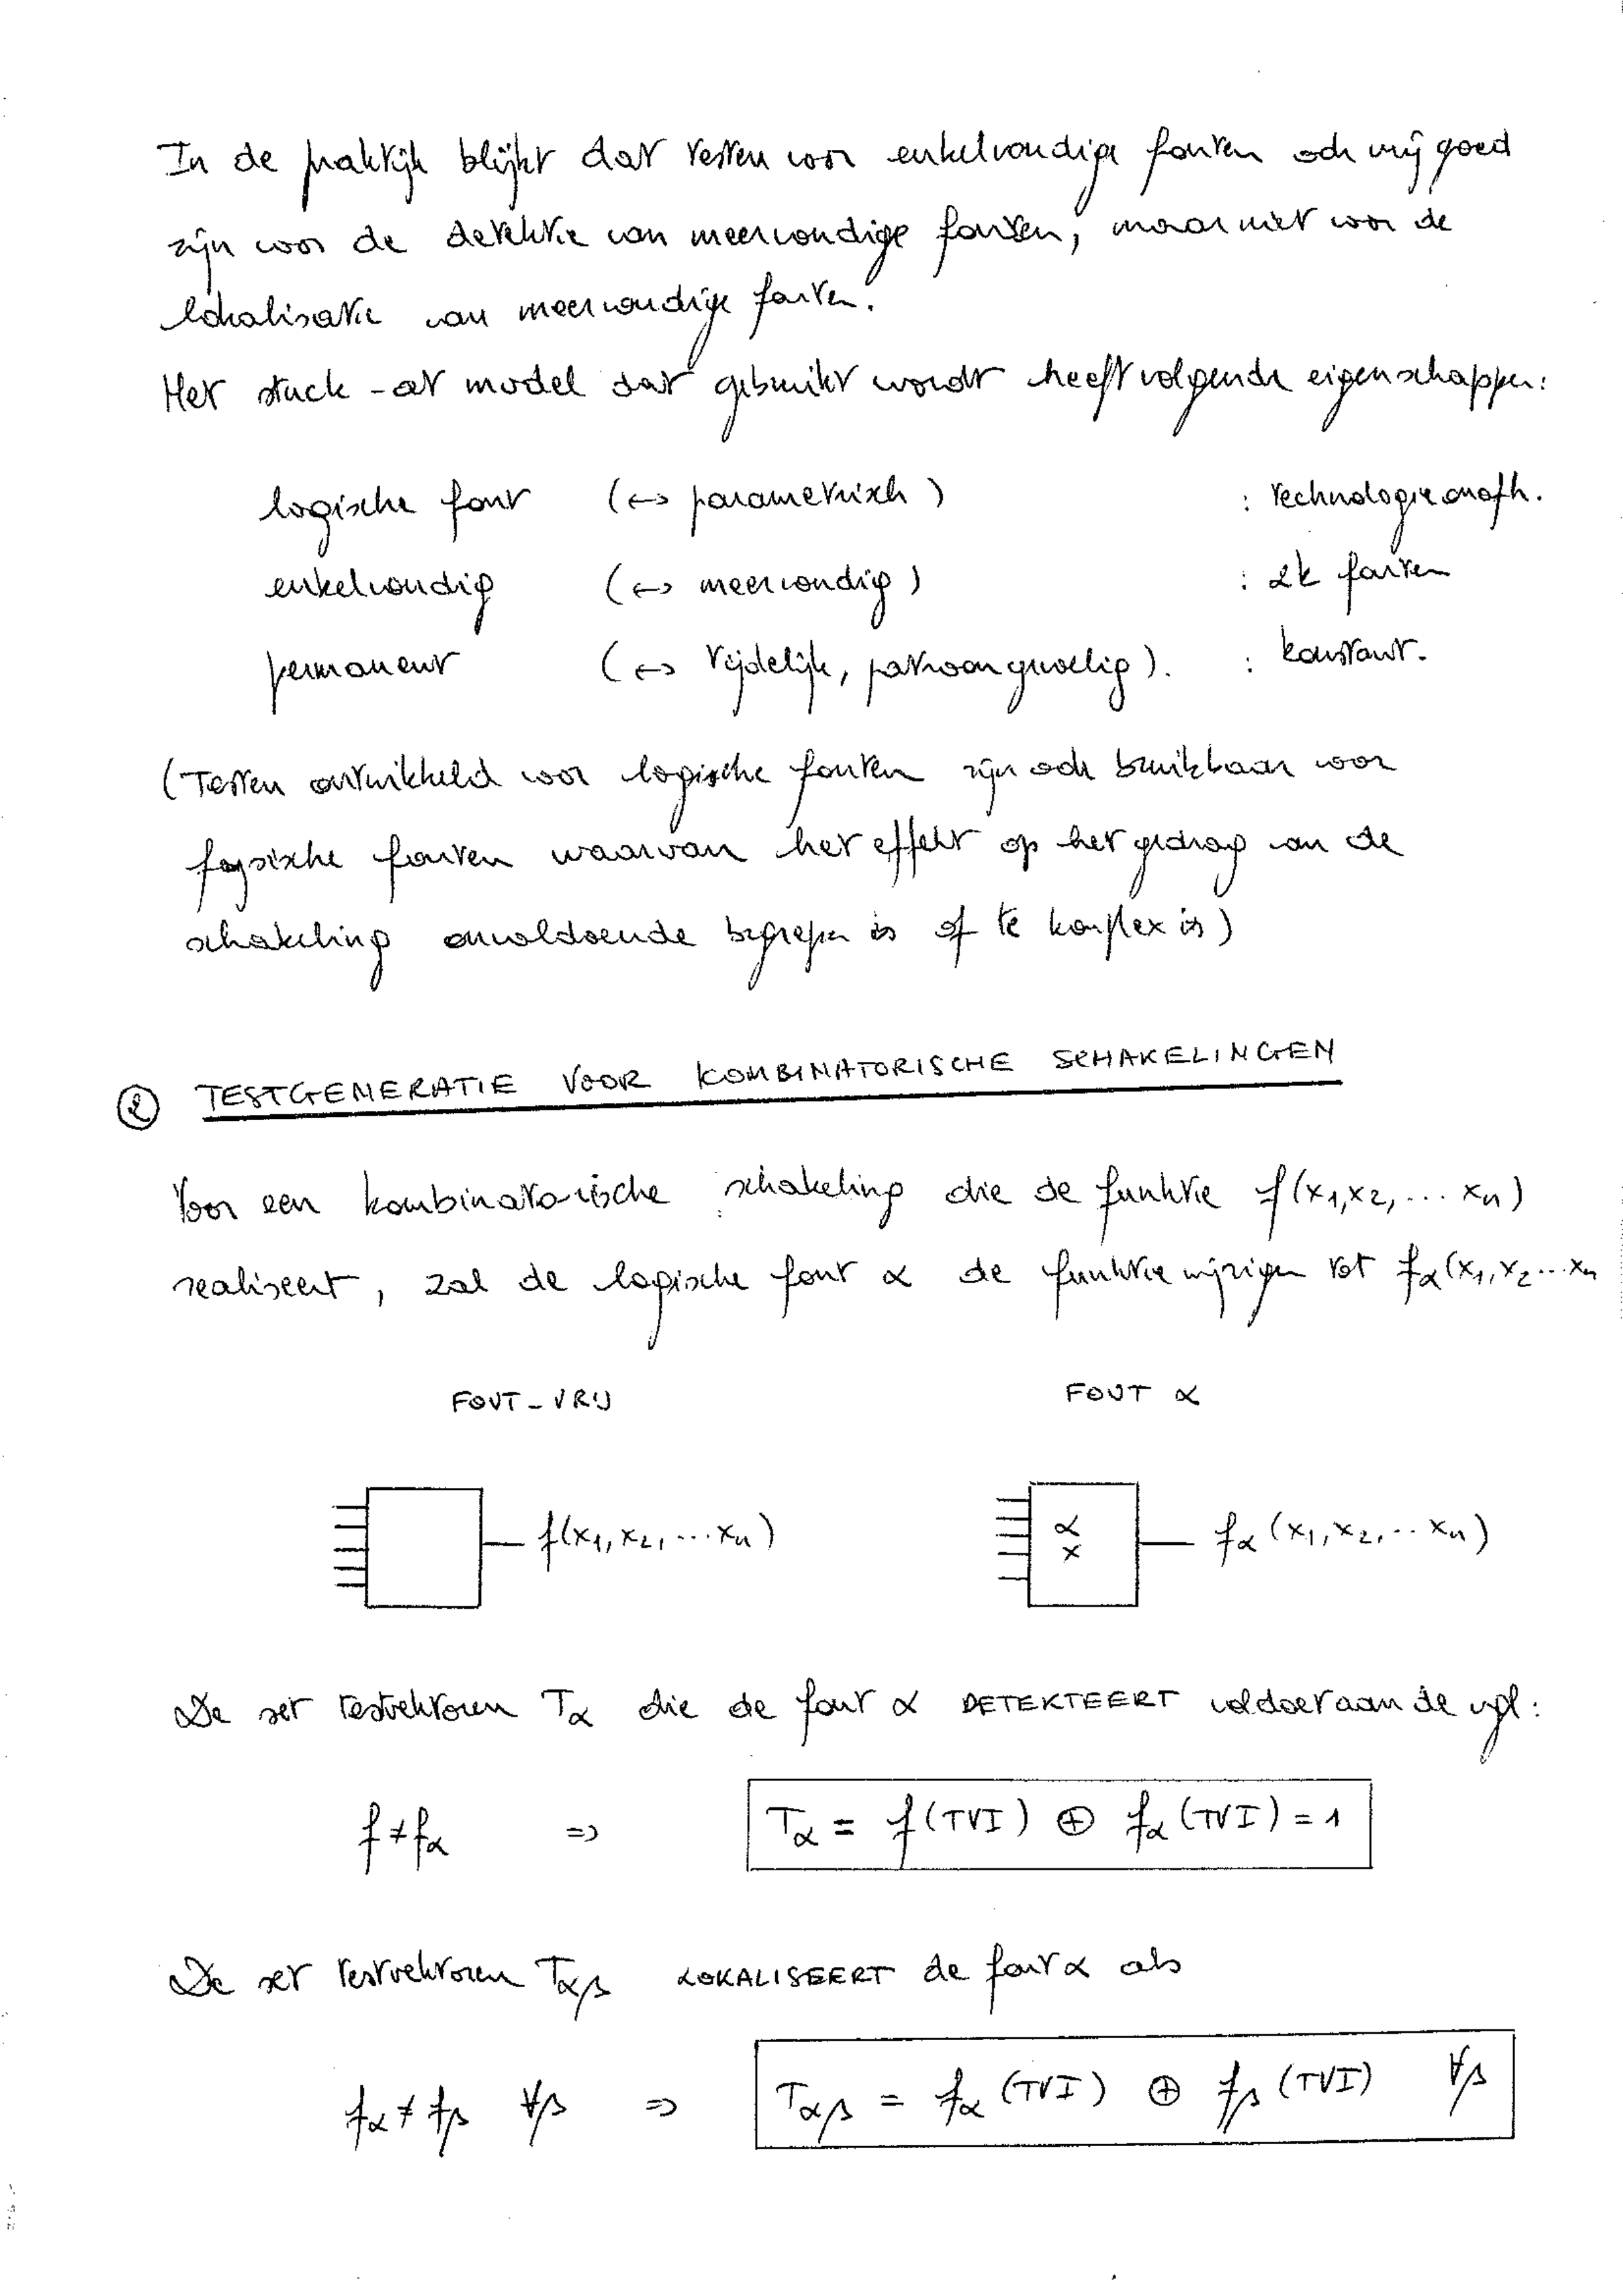 In de praktijk blijkt dat testen voor enkelvoudige fouten ook vrij goed
zijn voor de detektie van meervoudige fouten, maar niet voor de
lokalisatie van meervoudige fouten.
Het stuck-at model dat gebruikt wordt heeft volgende eigenschappen:
logische fout (↔ parametrisch) : technologie onafh.
enkelvoudig (↔ meervoudig) : 2k fouten
permanent (↔ tijdelijk, patroongevoelig). : konstant.
(Testen ontwikkeld voor logische fouten zijn ook bruikbaar voor
fysische fouten waarvan het effekt op het gedrag van de
schakeling onvoldoende begrepen is of te komplex is)
② TESTGENERATIE VOOR KOMBINATORISCHE SCHAKELINGEN
Voor een kombinatorische schakeling die de funktie f(x1,x2,... xn)
realiseert, zal de logische fout α de funktie wijzigen tot fα(x1,x2...xn
FOUT-VRIJ FOUT α
f(x1,x2,...xn) α x fα(x1,x2,..xn)
De set testvektoren Tα die de fout α DETEKTEERT voldoet aan de vgl:
f≠fα => Tα = f(TVI) ⊕ fα(TVI) = 1
De set testvektoren Tαβ LOKALISEERT de fout α als
fα≠fβ ∀β => Tαβ = fα(TVI) ⊕ fβ(TVI) ∀β